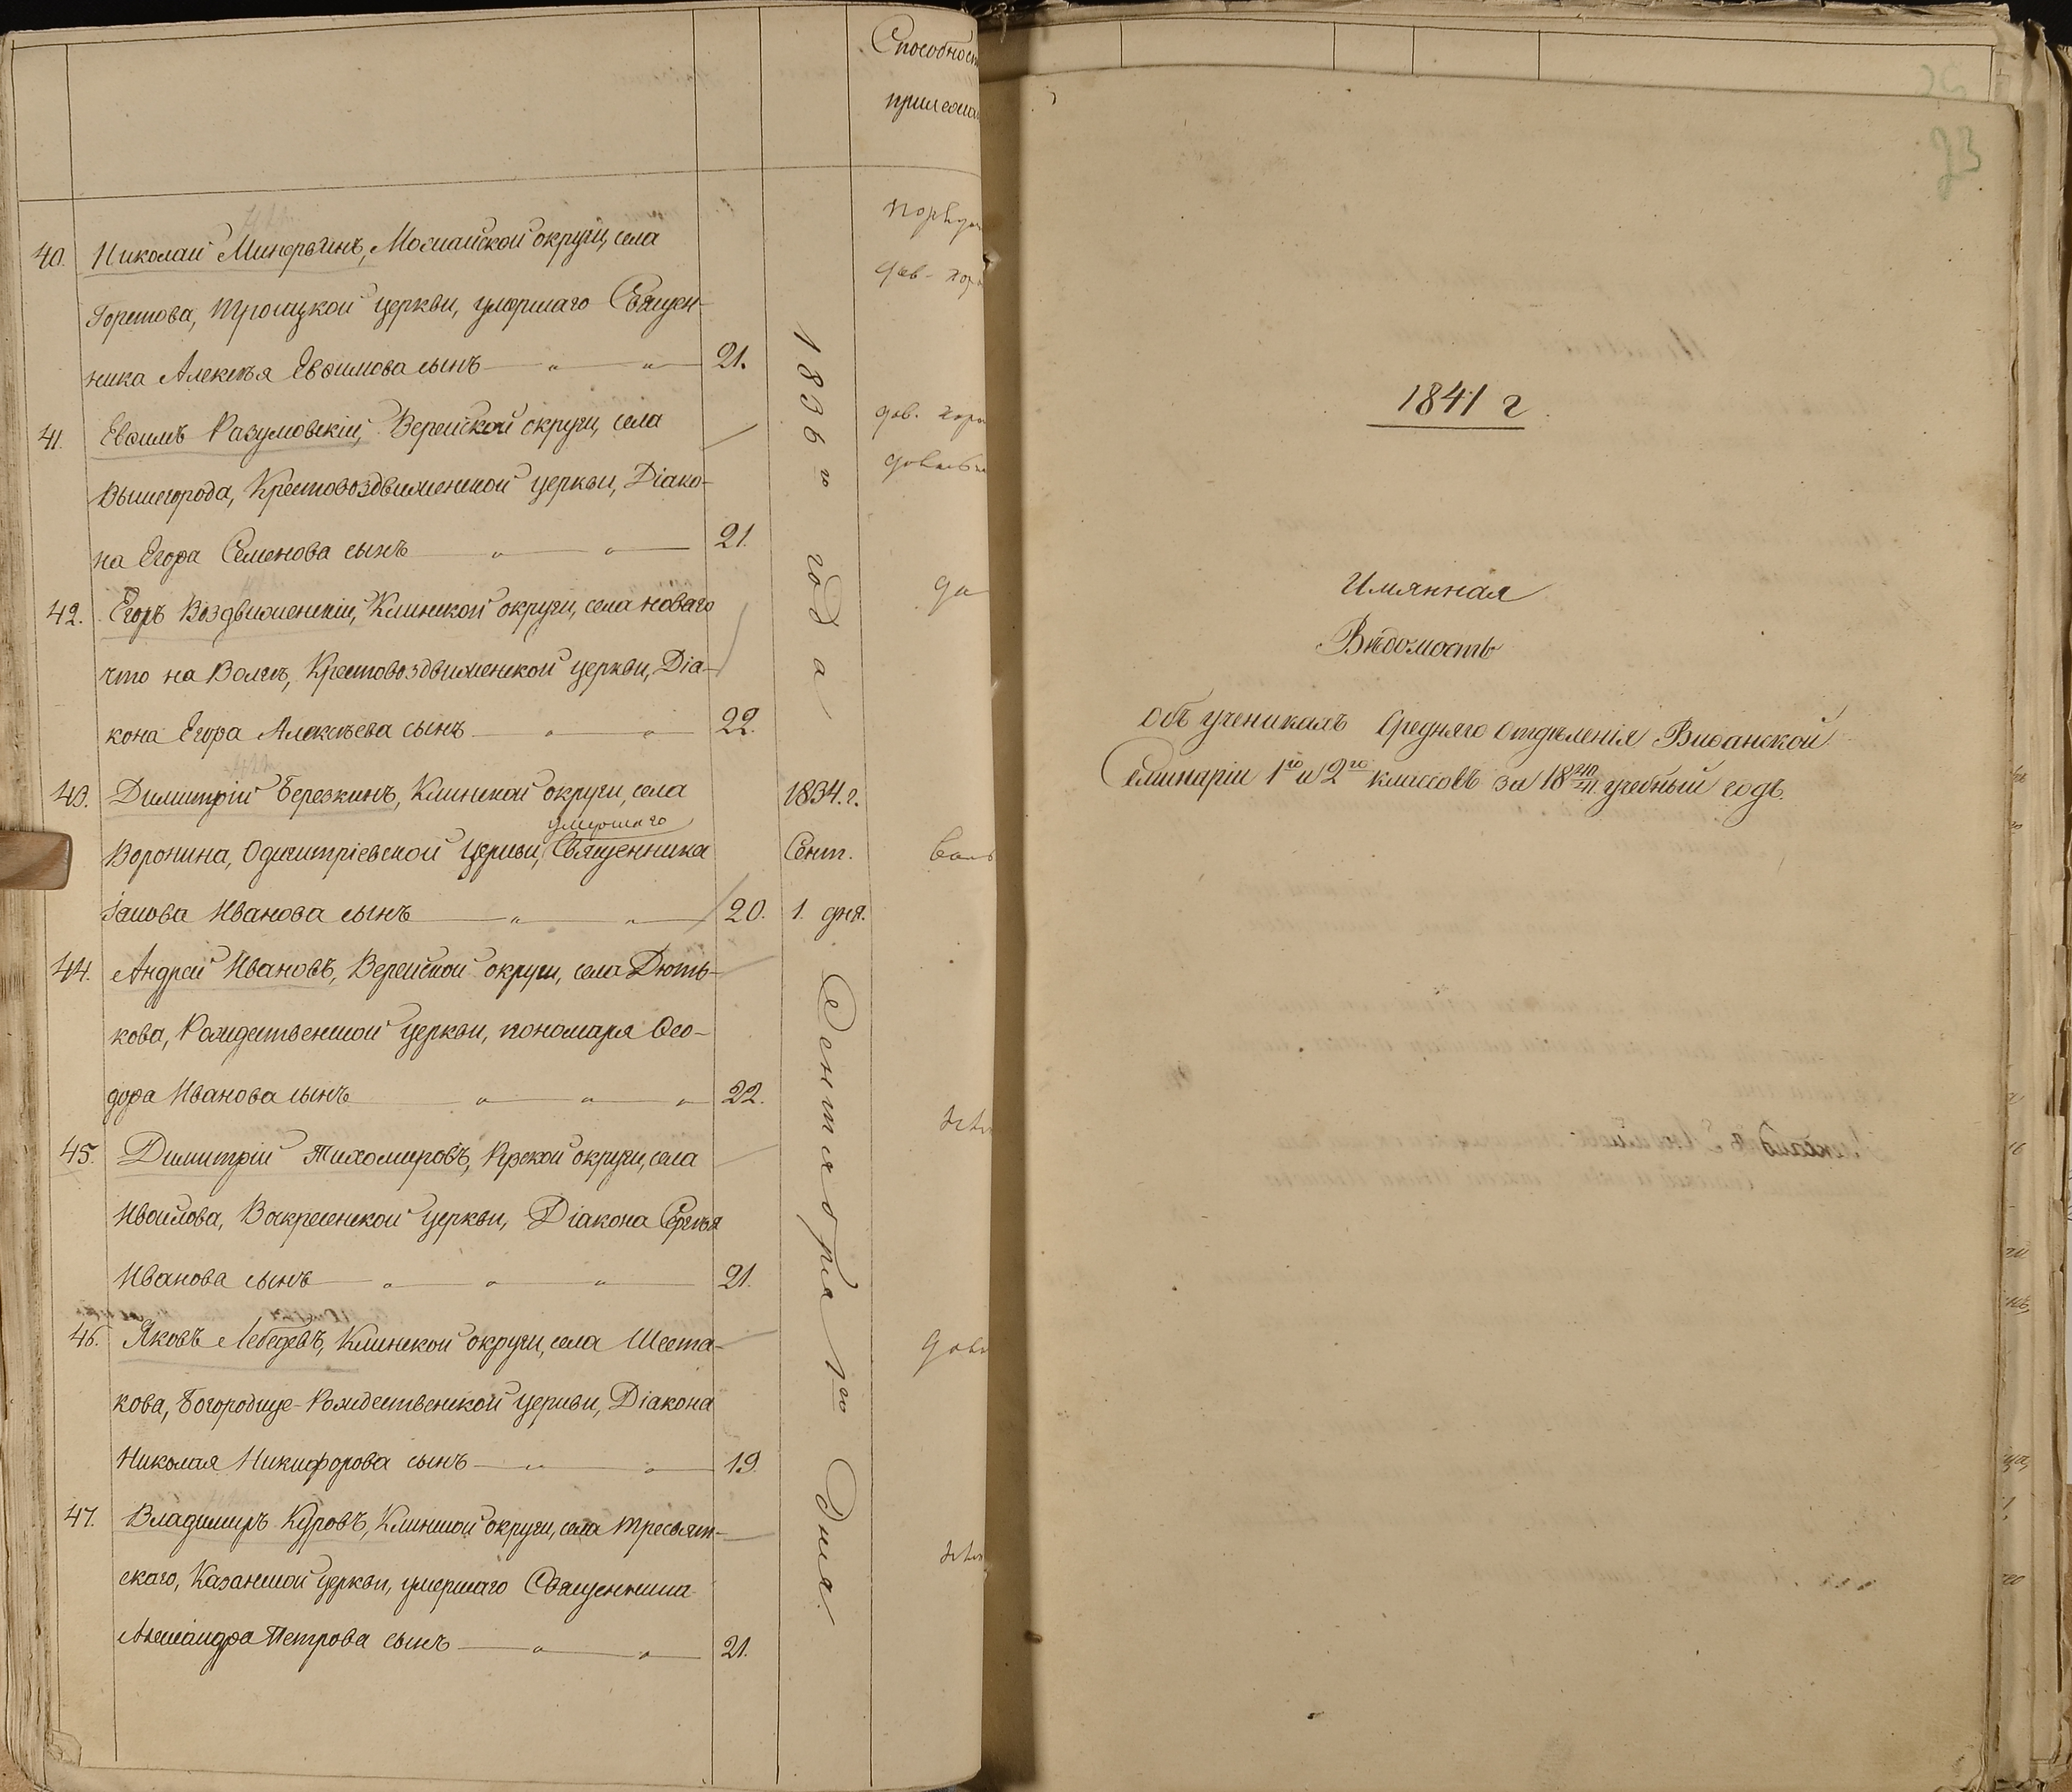 Способност
прилежа
40. Николай Минервинъ, Можайской округи, села
Горетова, Троицкой церкви, умершаго Священ-
ника Алексѣя Евѳимова сынъ — „ — „ — 21.
41. Евѳимъ Разумовскій, Верейской округи, села
Вышегорода, Крестовоздвиженской церкви, Діако-
на Егора Семенова сынъ — „ — „ — 21.
42. Егоръ Воздвиженскій, Клинской округи, села новаго
что на Волгѣ, Крестовоздвиженской церкви, Діа-
кона Егора Алексѣева сынъ — „ — „ — 22.
1836го года
43. Димитрій Березкинъ, Клинской округи, села 1834. г.
умершаго
Воронина, Одигитріевской церкви, Священника Сент.
Іакова Иванова сынъ — „ — „ — 20. 1. дня.
44. Андрей Ивановъ, Верейской округи, села Дють-
кова, Рождественской церкви, пономаря Ѳео-
дора Иванова сынъ — „ — „ — „ — 22.
45. Димитрій Тихомировъ, Рузской округи, села
Ивойлова, Воскресенской церкви, Діакона Сергѣя
Иванова сынъ — „ — „ — „ — 21.
46. Яковъ Лебедевъ, Клинской округи, села Шеста-
кова, Богородице-Рождественской церкви, Діакона
Николая Никифорова сынъ — „ — „ — 19.
47. Владимиръ Куровъ, Клинской округи, села Тресвят-
скаго, Казанской церкви, умершаго Священника
Александра Петрова сынъ — „ — „ — 21.
Сентября 1го дня
23
1841 г.
Имянная
Вѣдомость
объ ученикахъ Средняго Отдѣленія Виѳанской
Семинаріи 1го и 2го классовъ за 1840/41 учебный годъ.